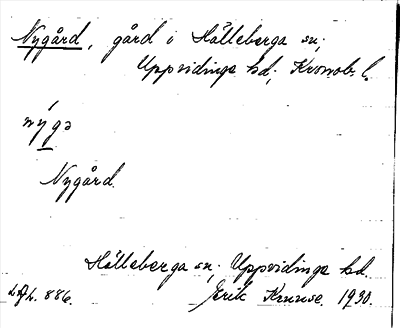 Nygård, gård i Hälleberga sn;
Uppvidinge hd; Kronob. l.
nýgə
Nygård.
Hälleberga sn; Uppvidinge hd.
L.A.L. 886. Erik Kruuse. 1930.